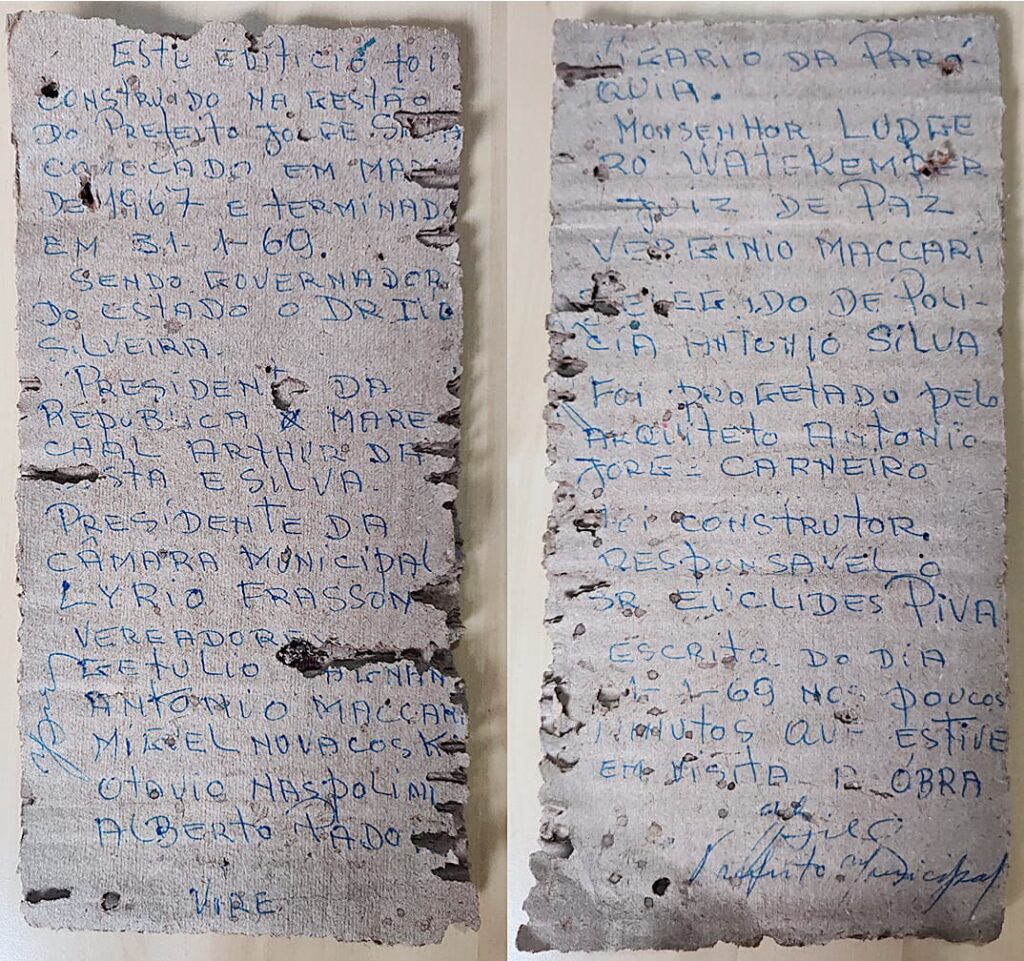 ESTE EDIFICIO foi
CONSTRUIDO NA GESTÃO
DO PREFEITO JORGE SILVA
COMECADO EM
DE 1967 E TERMINADO
EM 31-1-69.
SENDO GOVERNADOR
DO ESTADO O DR IVO
SILVEIRA.
PRESIDENTE DA
REPUBLICA MARE
CHAL ARTHUR DA
COSTA E SILVA.
PRESIDENTE DA
CÂMARA MUNICIPAL
LYRIO FRASSON
VEREADORES
GETULIO
ANTONIO MACCARI
MIGUEL NOVACOSKI
OTAVIO NASPOLINI
ALBERTO
VIRE
VIGARIO DA PARÓ-
QUIA.
MONSENHOR LUDGE
RO WATEKEMPER
JUIZ DE PAZ
VERGINIO MACCARI
DELEGADO DE POLI-
CIA ANTONIO SILVA
FOI PROGETADO PELO
ARQUITETO ANTONIO
JORGE CARNEIRO
foi CONSTRUTOR
RESPONSAVEL O
SR EUCLIDES PIVA
ESCRITA DO DIA
1-69 NOS POUCOS
MINUTOS QUE ESTIVE
EM VISITA A OBRA
Prefeito Municipal